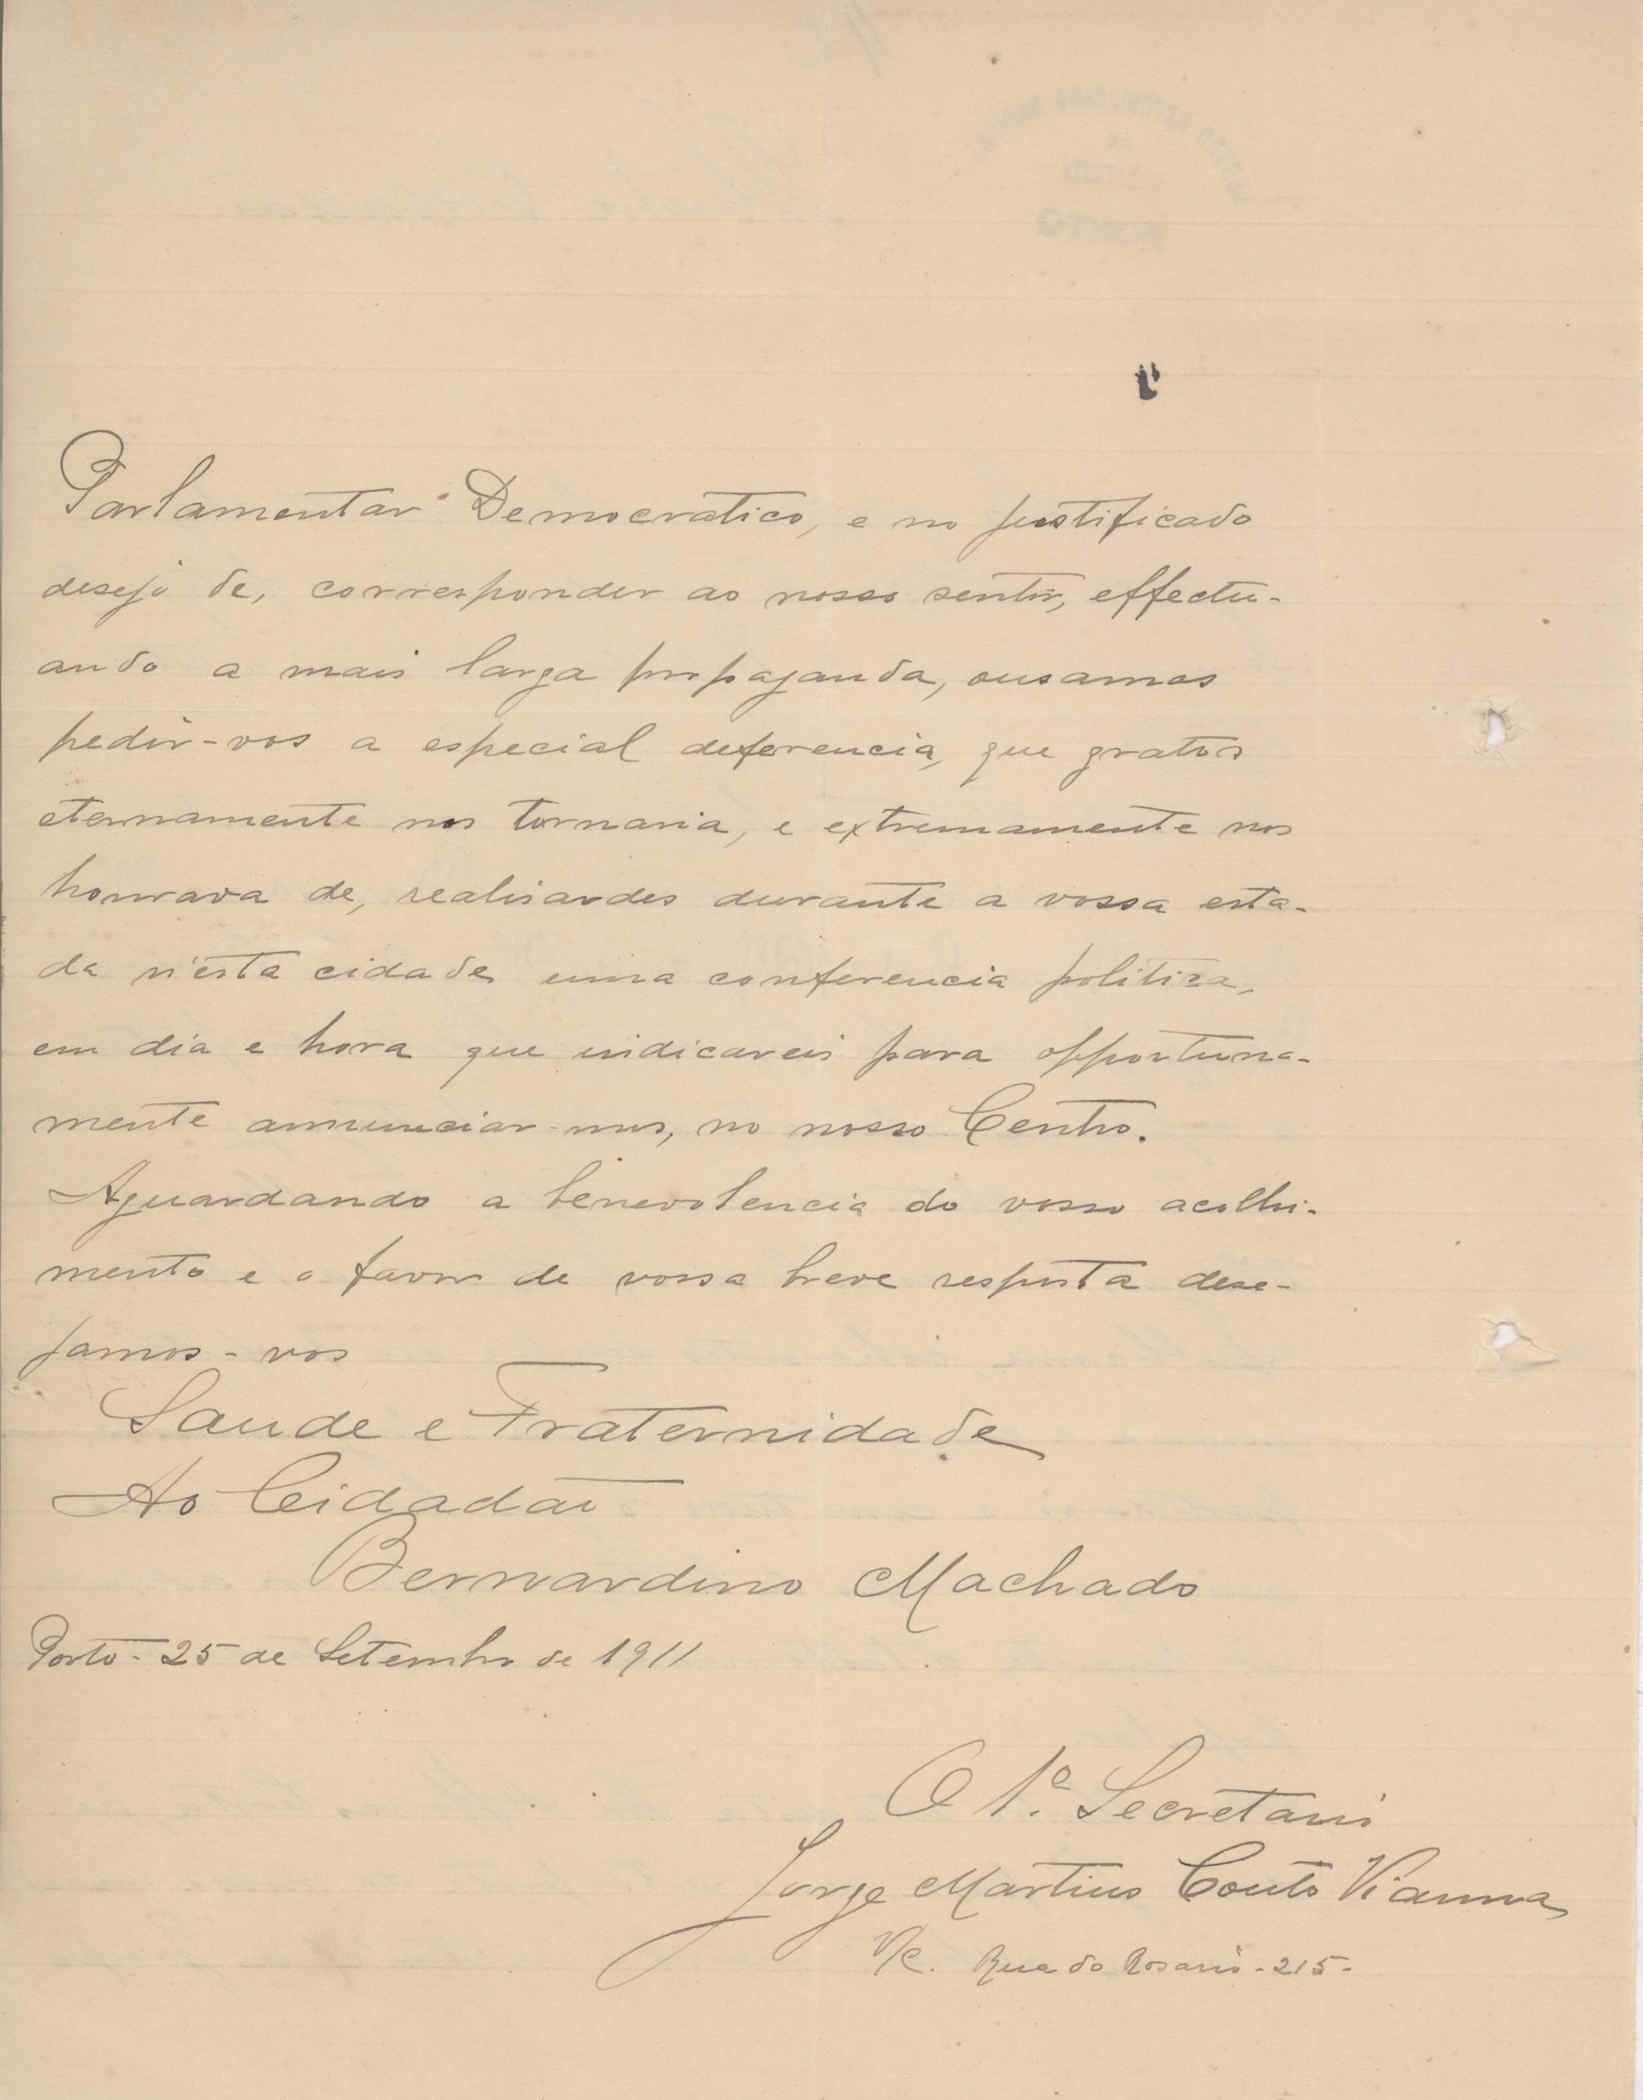 Parlamentar Democratico, e no justificado
desejo de, corresponder ao nosso sentir, effectu-
ando a mais larga propaganda, ousamos
pedir-vos a especial deferencia, que gratos
eternamente nos tornaria, e extremamente nos
honrava de, realisardes durante a vossa esta-
da n'esta cidade uma conferencia politica,
em dia e hora que indicareis para opportuna-
mente annunciar-mos, no nosso Centro.
Aguardando a benevolencia do vosso acolhi-
mento e o favor de vossa breve resposta dese-
jamos-vos
Saude e Fraternidade
Ao Cidadão
Bernardino Machado
Porto - 25 de Setembro de 1911
O 1º. Secretario
Jorge Martins Couto Vianna
Rua do Rosario - 215 -